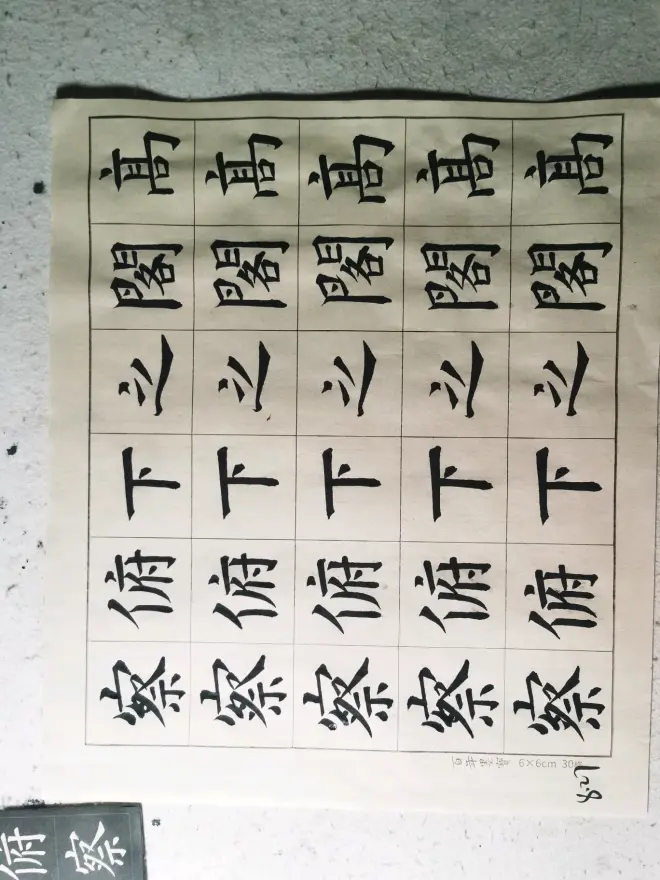 高高高高高
閣閣閣閣閣
之之之之之
下下下下下
俯俯俯俯俯
察察察察察
6×6cm 30
8.27
俯
察